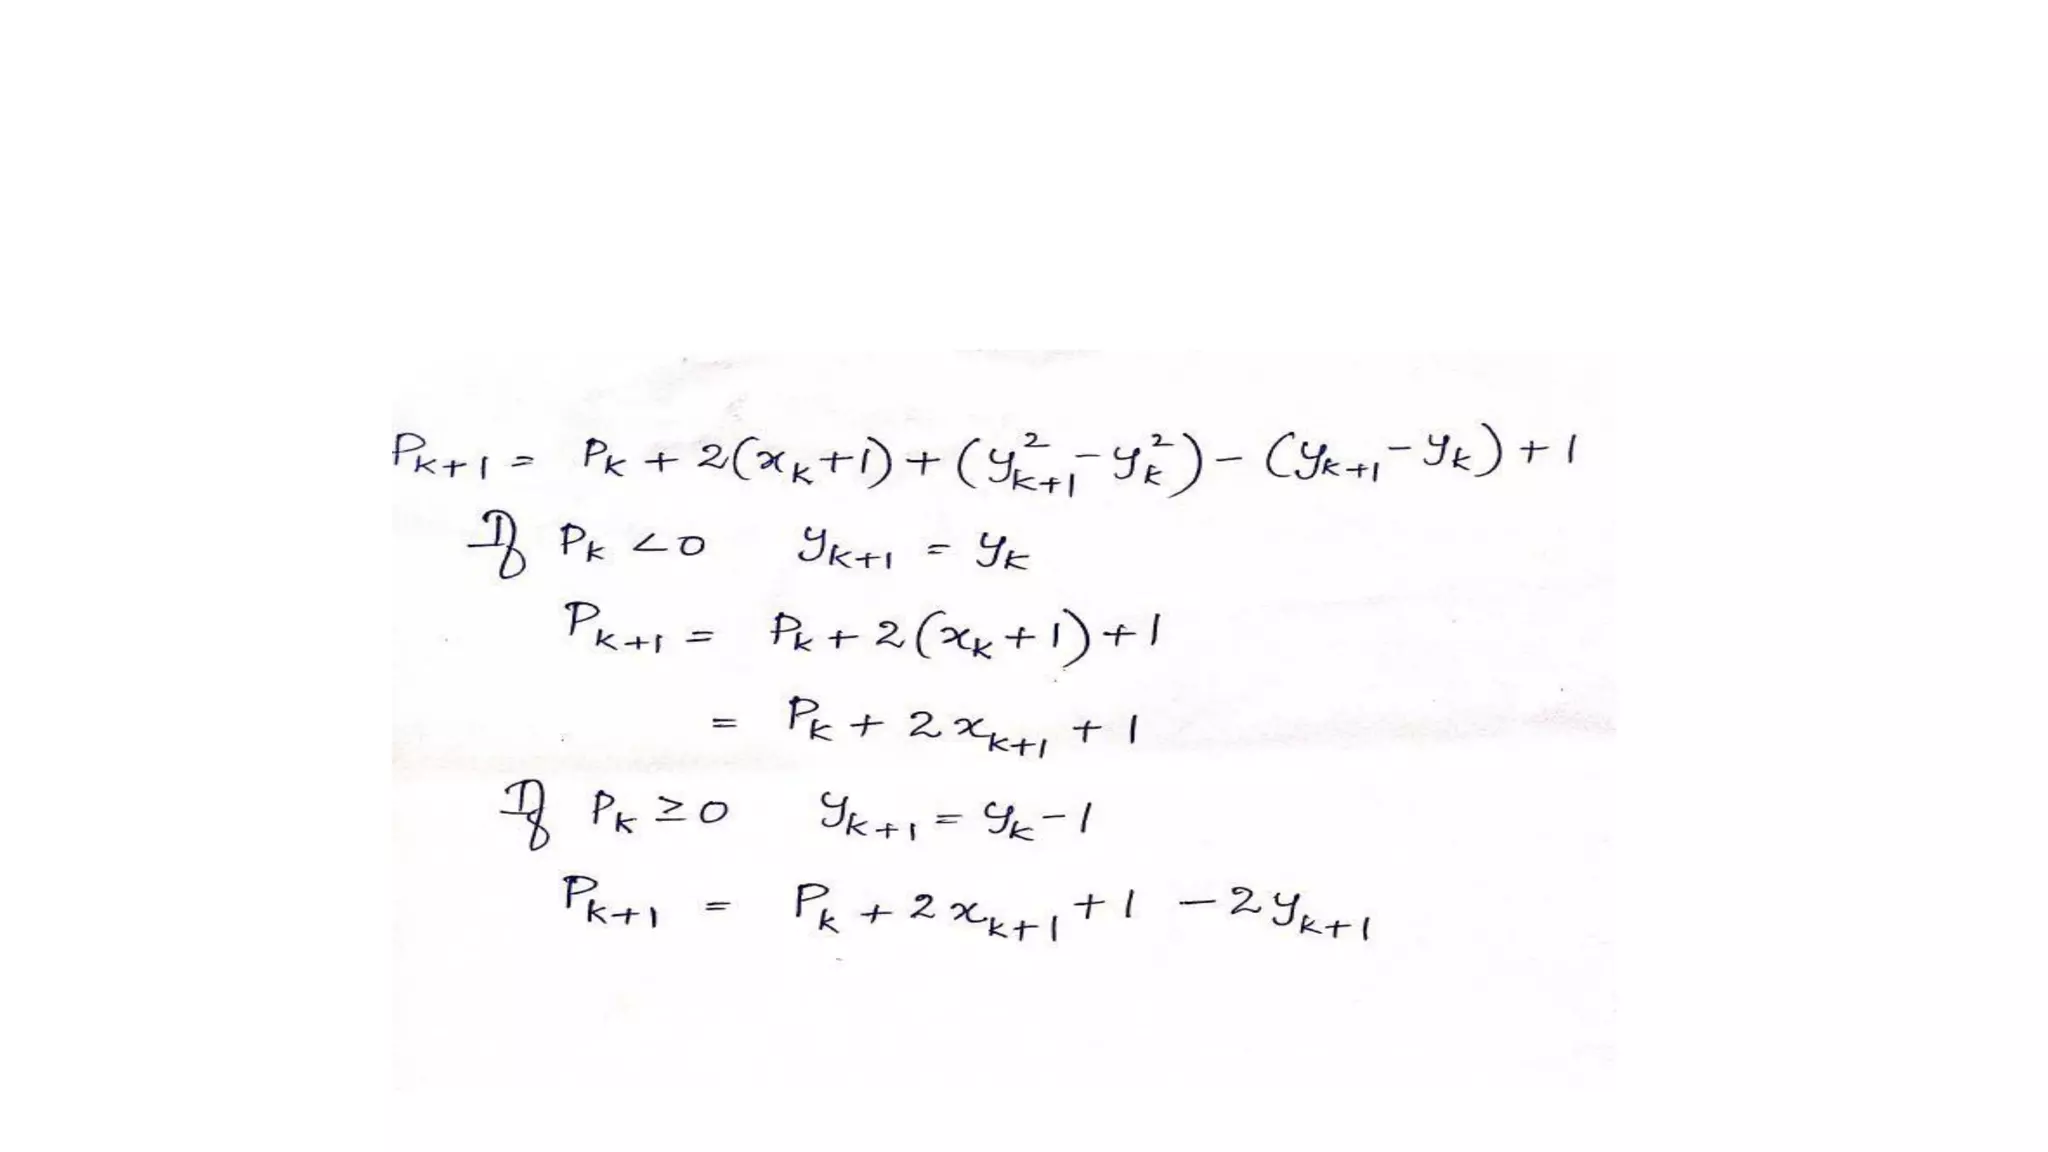 P_{k+1} = P_k + 2(x_k+1) + (y²_{k+1} - y²_k) - (y_{k+1} - y_k) + 1
If P_k < 0 y_{k+1} = y_k
P_{k+1} = P_k + 2(x_k + 1) + 1
= P_k + 2x_{k+1} + 1
If P_k ≥ 0 y_{k+1} = y_k - 1
P_{k+1} = P_k + 2x_{k+1} + 1 - 2y_{k+1}